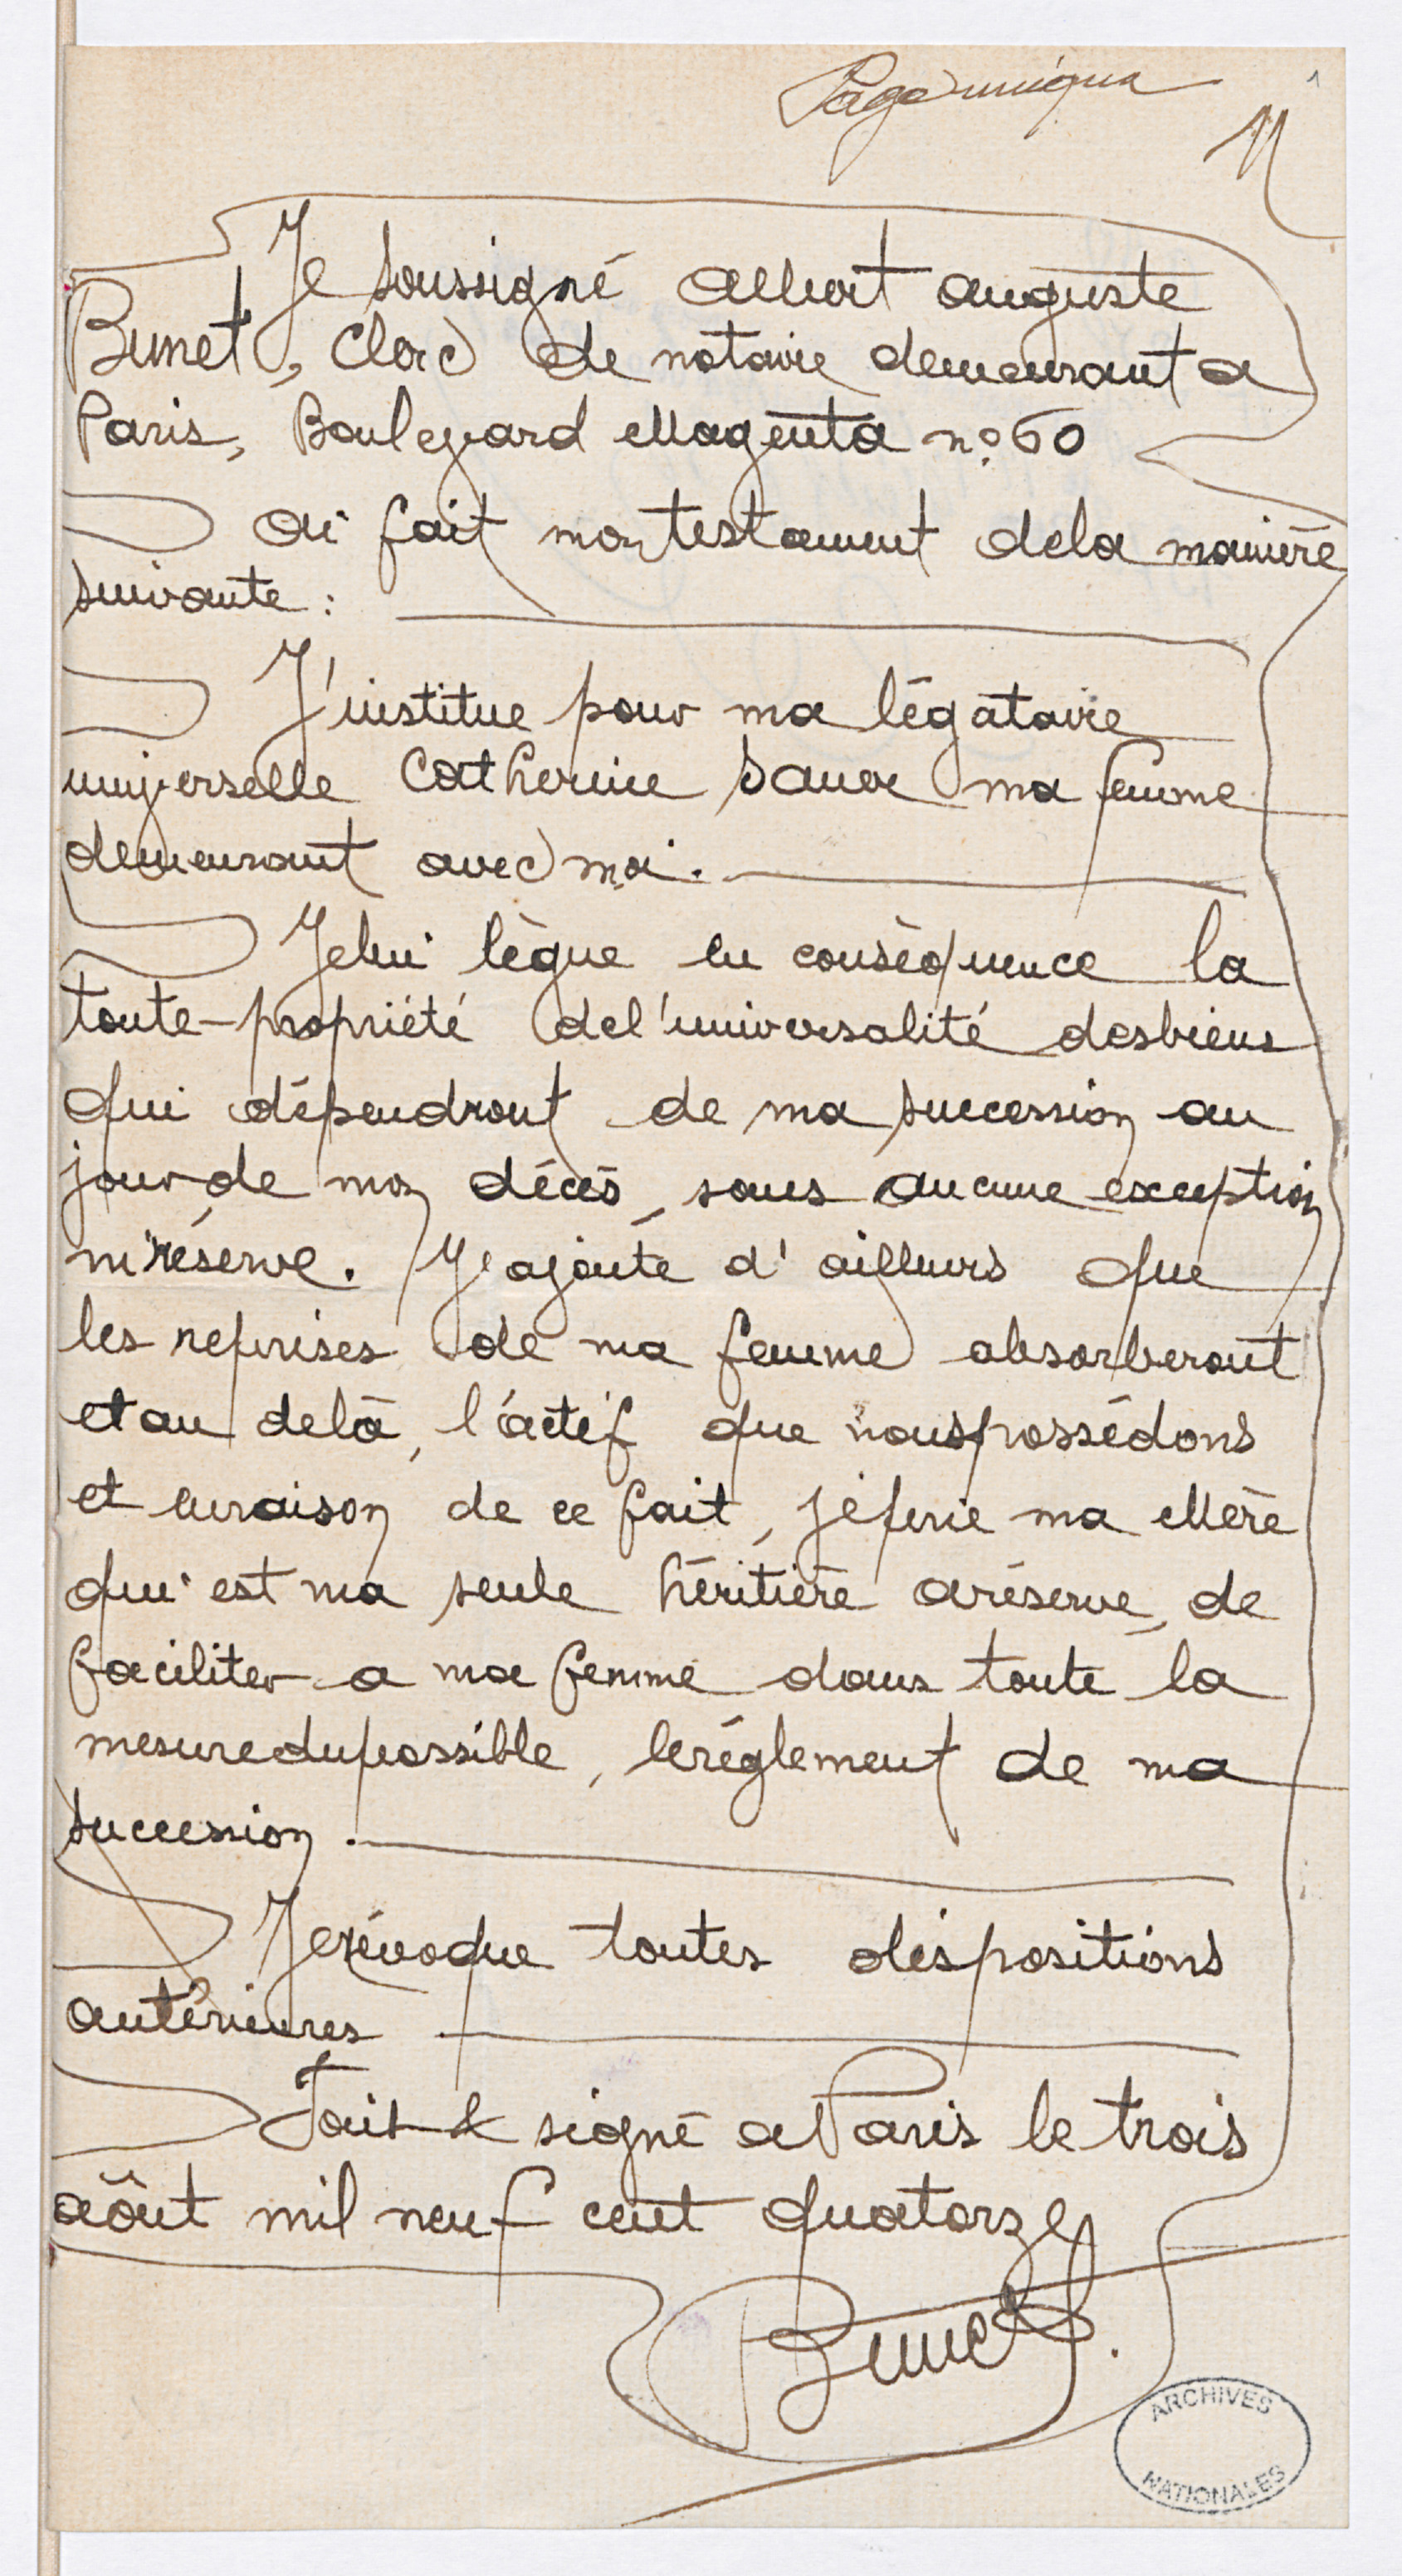 Page unique
Je soussigné Albert Auguste
Bunet, clerc de notaire demeurant a
Paris, Boulevard Magenta no 60
ai fait mon testament de la manière
suivante :
J'institue pour ma légataire
universelle Catherine ma femme
demeurant avec moi.
Je lui lègue en conséquence la
toute-propriété de l'universalité des biens
qui dépendront de ma succession au
jour de mon décès, sans aucune exception
ni réserve. J'ajoute d'ailleurs que
les reprises de ma femme absorberont
et au delà, l'actif que nous possédons
et en raison de ce fait, je prie ma Mère
qui est ma seule héritière a réserve, de
faciliter a ma femme dans toute la
mesure du possible, le réglement de ma
succession.
Je révoque toutes dispositions
antérieures
Fait & signé a Paris le trois
aôut mil neuf cent quatorze
Bunet
ARCHIVES
NATIONALES